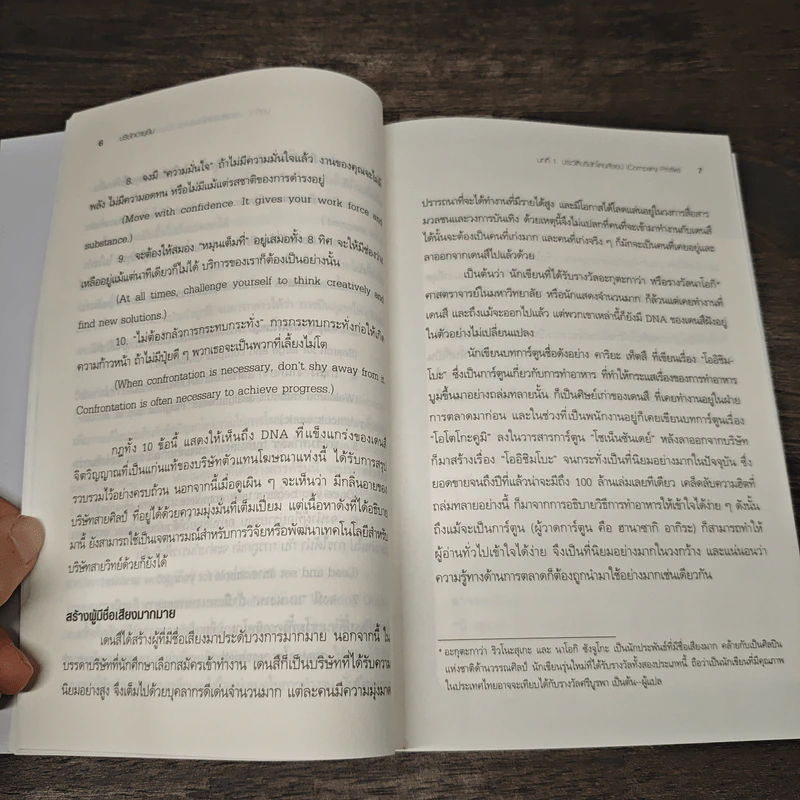 6
8. จงมี "ความมั่นใจ" ถ้าไม่มีความมั่นใจแล้ว งานของคุณจะไม่มี
พลัง ไม่มีความอดทน หรือไม่มีแม้แต่รสชาติของการดำรงอยู่
(Move with confidence. It gives your work force and
substance.)
9. จะต้องให้สมอง "หมุนเต็มที่" อยู่เสมอทั้ง 8 ทิศ จะให้มีช่องว่าง
เหลืออยู่แม้แต่นาทีเดียวก็ไม่ได้ บริการของเราก็ต้องเป็นอย่างนั้น
(At all times, challenge yourself to think creatively and
find new solutions.)
10. "ไม่ต้องกลัวการกระทบกระทั่ง" การกระทบกระทั่งก่อให้เกิด
ความก้าวหน้า ถ้าไม่มีปุ๋ยดี ๆ พวกเธอจะเป็นพวกที่เลี้ยงไม่โต
(When confrontation is necessary, don't shy away from it.
Confrontation is often necessary to achieve progress.)
กฎทั้ง 10 ข้อนี้ แสดงให้เห็นถึง DNA ที่แข็งแกร่งของเดนสึ
จิตวิญญาณที่เป็นแก่นแท้ของบริษัทตัวแทนโฆษณาแห่งนี้ ได้รับการสรุป
รวบรวมไว้อย่างครบถ้วน นอกจากนี้เมื่อดูเผิน ๆ จะเห็นว่า มีกลิ่นอายของ
บริษัทสายศิลป์ ที่อยู่ได้ด้วยความมุ่งมั่นที่เต็มเปี่ยม แต่เนื้อหาดังที่ได้อธิบาย
มานี้ ยังสามารถใช้เป็นเจตนารมณ์สำหรับการวิจัยหรือพัฒนาเทคโนโลยีสำหรับ
บริษัทสายวิทย์ด้วยก็ยังได้
สร้างผู้มีชื่อเสียงมากมาย
เดนสึได้สร้างผู้ที่มีชื่อเสียงมาประดับวงการมากมาย นอกจากนี้ ใน
บรรดาบริษัทที่นักศึกษาเลือกสมัครเข้าทำงาน เดนสึก็เป็นบริษัทที่ได้รับความ
นิยมอย่างสูง จึงเต็มไปด้วยบุคลากรดีเด่นจำนวนมาก แต่ละคนมีความมุ่งมาด
บทที่ 1 ประวัติบริษัทโดยสังเขป (Company Profile) 7
ปรารถนาที่จะได้ทำงานที่มีรายได้สูง และมีโอกาสได้โลดแล่นอยู่ในวงการสื่อสาร
มวลชนและวงการบันเทิง ด้วยเหตุนี้จึงไม่แปลกที่คนที่จะเข้ามาทำงานกับเดนสึ
ได้นั้นจะต้องเป็นคนที่เก่งมาก และคนที่เก่งจริง ๆ ก็มักจะเป็นคนที่เคยอยู่และ
ลาออกจากเดนสึไปแล้วด้วย
เป็นต้นว่า นักเขียนที่ได้รับรางวัลอะกุตะกาว่า หรือรางวัลนาโอกิ*
ศาสตราจารย์ในมหาวิทยาลัย หรือนักแสดงจำนวนมาก ก็ล้วนแต่เคยทำงานที่
เดนสึ และถึงแม้จะออกไปแล้ว แต่พวกเขาเหล่านี้ก็ยังมี DNA ของเดนสึฝังอยู่
ในตัวอย่างไม่เปลี่ยนแปลง
นักเขียนบทการ์ตูนชื่อดังอย่าง คาริยะ เท็ตสึ ที่เขียนเรื่อง "โออิชิม-
โบะ" ซึ่งเป็นการ์ตูนเกี่ยวกับการทำอาหาร ที่ทำให้กระแสเรื่องของการทำอาหาร
บูมขึ้นมาอย่างถล่มทลายนั้น ก็เป็นศิษย์เก่าของเดนสึ ที่เคยทำงานอยู่ในฝ่าย
การตลาดมาก่อน และในช่วงที่เป็นพนักงานอยู่ก็เคยเขียนบทการ์ตูนเรื่อง
"โอโตโกะคูมิ" ลงในวารสารการ์ตูน "โชเน็นซันเดย์" หลังลาออกจากบริษัท
ก็มาสร้างเรื่อง "โออิชิมโบะ" จนกระทั่งเป็นที่นิยมอย่างมากในปัจจุบัน ซึ่ง
ยอดขายจนถึงปีที่แล้วน่าจะมีถึง 100 ล้านเล่มเลยทีเดียว เคล็ดลับความฮิตที่
ถล่มทลายอย่างนี้ ก็มาจากการอธิบายวิธีการทำอาหารให้เข้าใจได้ง่าย ๆ ดังนั้น
ถึงแม้จะเป็นการ์ตูน (ผู้วาดการ์ตูน คือ ฮานาซากิ อากิระ) ก็สามารถทำให้
ผู้อ่านทั่วไปเข้าใจได้ง่าย จึงเป็นที่นิยมอย่างมากในวงกว้าง และแน่นอนว่า
ความรู้ทางด้านการตลาดก็ต้องถูกนำมาใช้อย่างมากเช่นเดียวกัน
* อะกุตะกาว่า ริวโนะสุเกะ และ นาโอกิ ซังจูโกะ เป็นนักประพันธ์ที่มีชื่อเสียงมาก คล้ายกับเป็นศิลปิน
แห่งชาติด้านวรรณศิลป์ นักเขียนรุ่นใหม่ที่ได้รับรางวัลทั้งสองประเภทนี้ ถือว่าเป็นนักเขียนที่มีคุณภาพ
ในประเทศไทยอาจจะเทียบได้กับรางวัลศรีบูรพา เป็นต้น-ผู้แปล